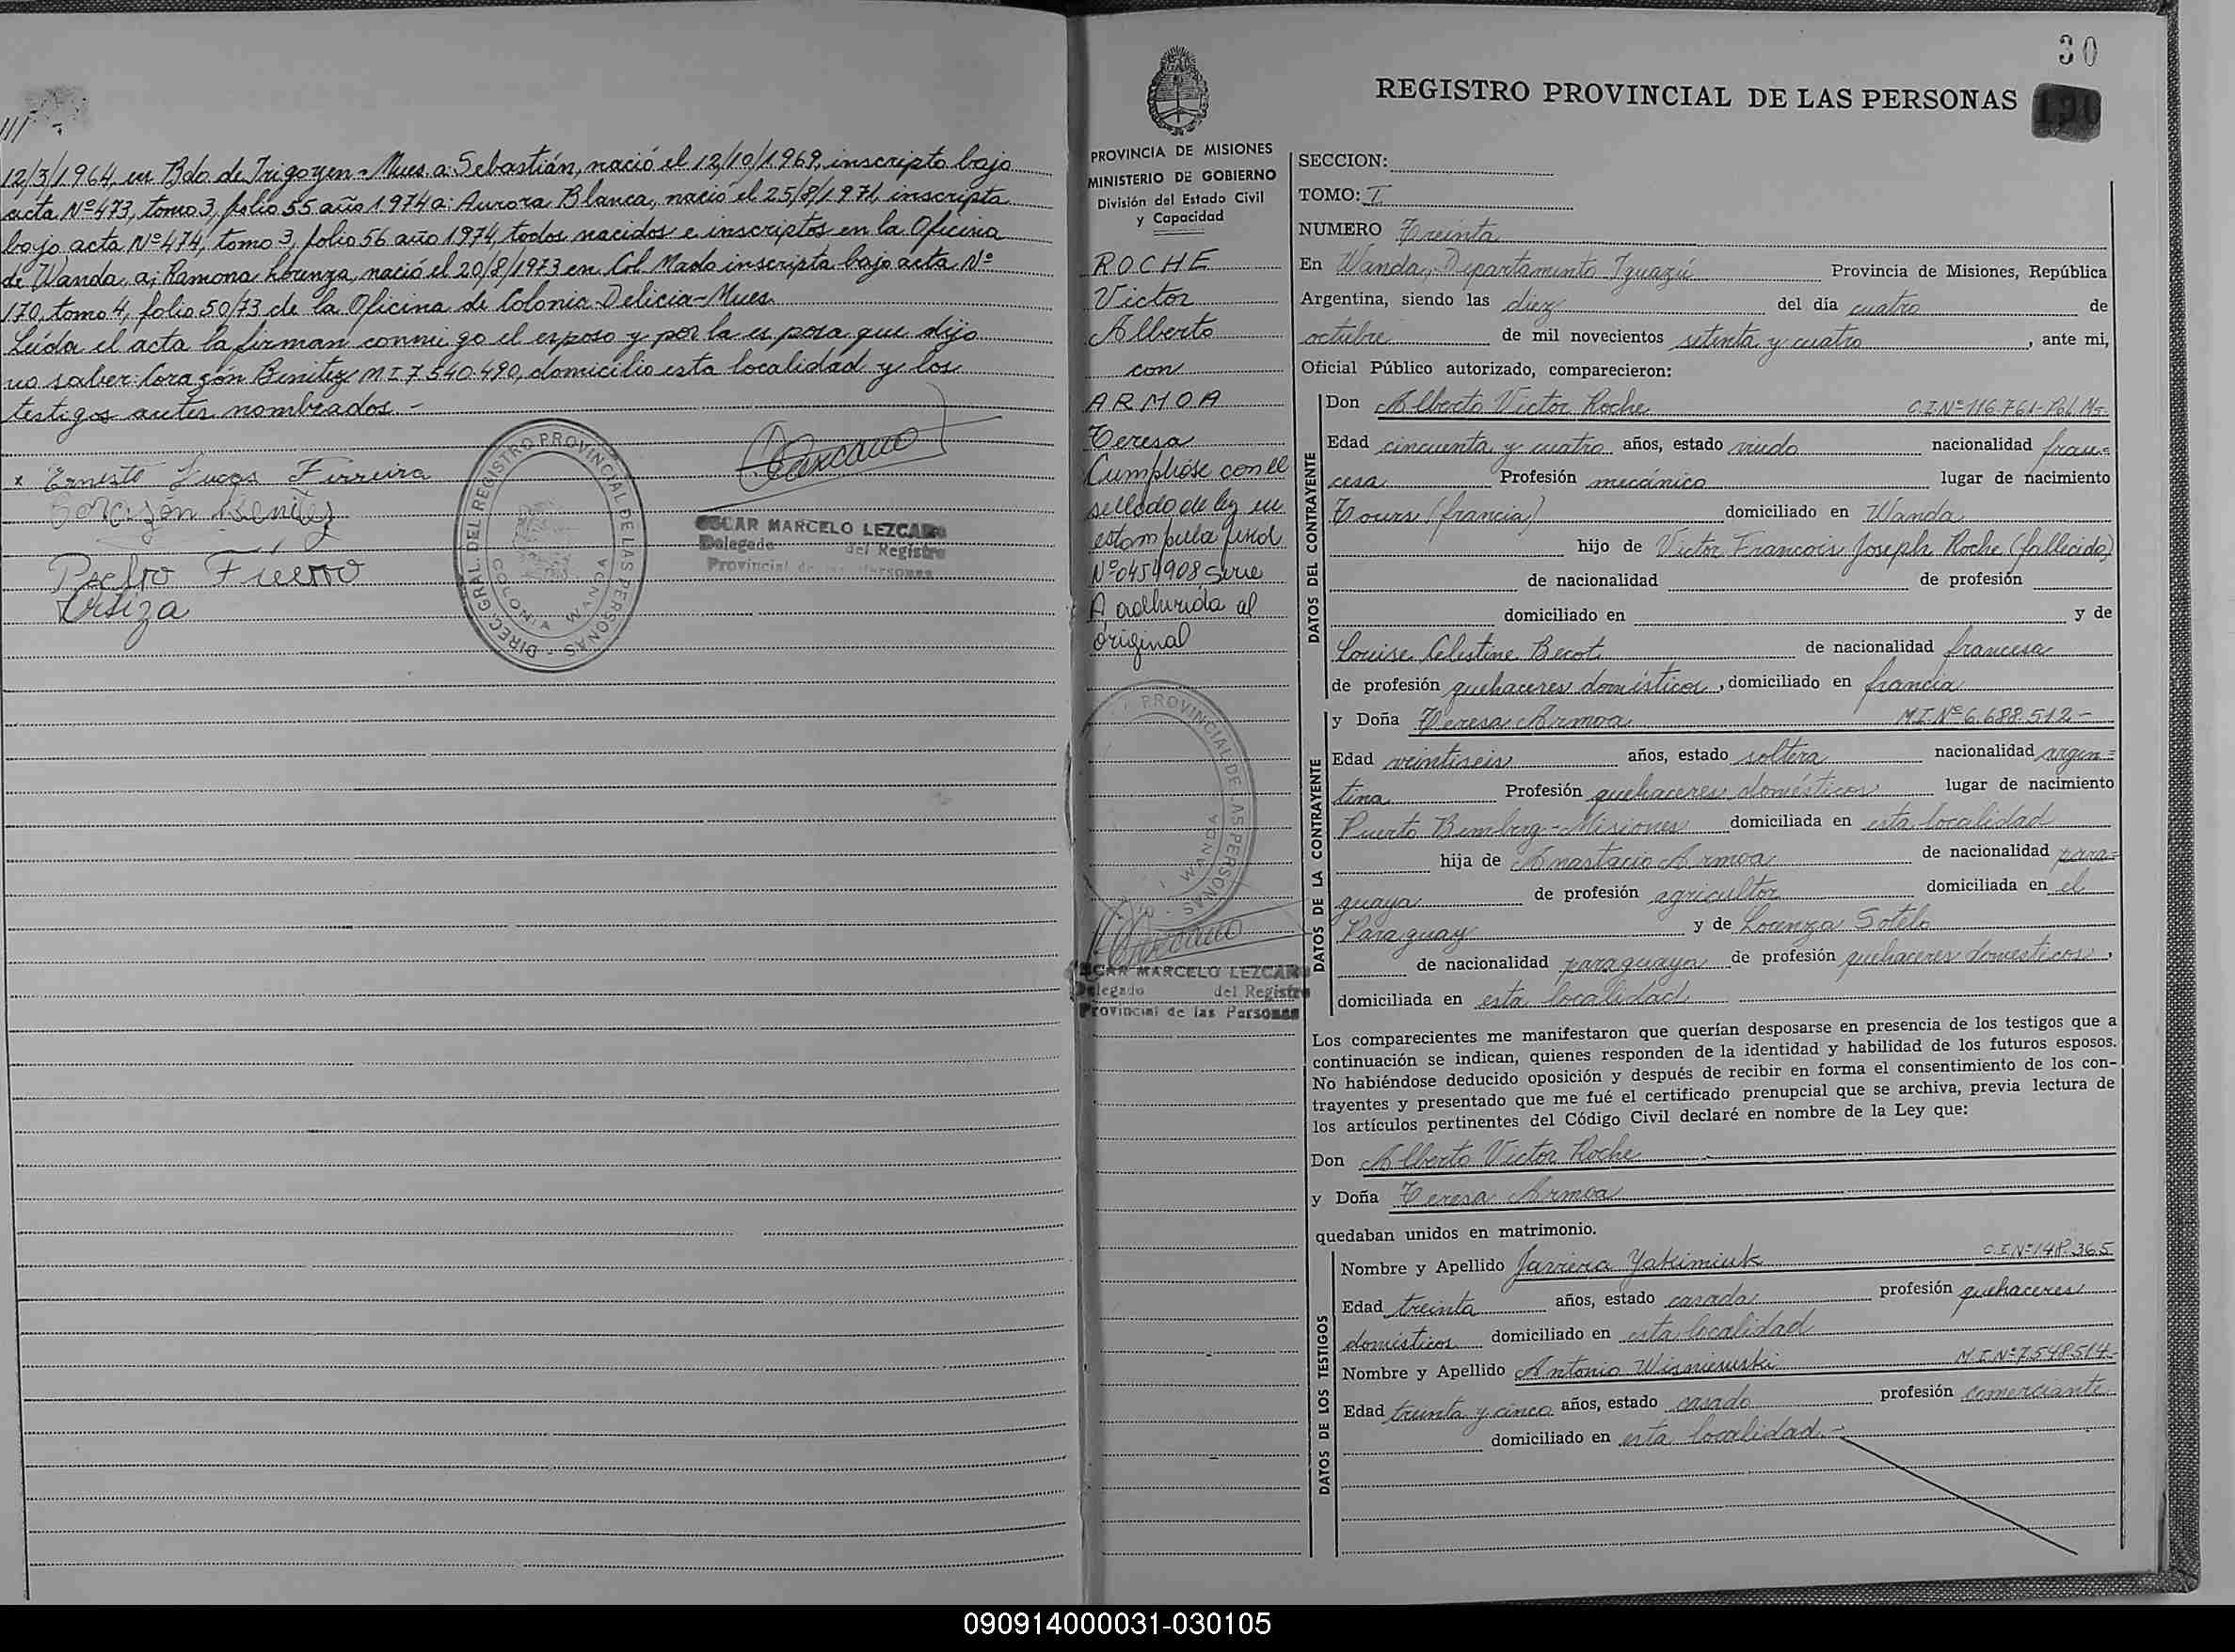 ///
12/3/1964, en Bdo de Irigoyen - Mnes a: Sebastián, nació el 12/10/1969, inscripto bajo
acta Nº 473, tomo 3, folio 55 año 1974 a: Aurora Blanca, nació el 25/8/1971, inscripta
bajo acta Nº 474, tomo 3, folio 56 año 1974, todos nacidos e inscriptos en la Oficina
de Wanda, a; Ramona Lorenza, nació el 20/8/1973 en Col. Mado inscripta bajo acta Nº
170, tomo 4, folio 50/73 de la Oficina de Colonia Delicia - Mnes.
Leída el acta la firman conmigo el esposo y por la esposa que dijo
no saber: Corazón Benitez MI 7.540.490, domicilio esta localidad y los
testigos antes nombrados. -
x Ernesto Lucas Ferreira
Corazón Benitez
Pedro Fierro
Urtiza
DIREC. GRAL. DEL REGISTRO PROVINCIAL DE LAS PERSONAS - COLONIA WANDA
Lezcano
OSCAR MARCELO LEZCANO
Delegado del Registro
Provincial de las Personas
30
REGISTRO PROVINCIAL DE LAS PERSONAS
PROVINCIA DE MISIONES
MINISTERIO DE GOBIERNO
División del Estado Civil
y Capacidad
ROCHE
Victor
Alberto
con
ARMOA
Teresa
Cumplióse con el
sellado de ley en
estampilla fiscal
Nº 0454908, Serie
A, adherida al
original
PROVINCIAL DE LAS PERSONAS - WANDA
Lezcano
OSCAR MARCELO LEZCANO
Delegado del Registro
Provincial de las Personas
SECCION:
TOMO: I
NUMERO Treinta
En Wanda, Departamento Iguazú Provincia de Misiones, República
Argentina, siendo las diez del día cuatro de
octubre de mil novecientos setenta y cuatro, ante mi,
Oficial Público autorizado, comparecieron:
DATOS DEL CONTRAYENTE
Don Alberto Victor Roche C.I. Nº 116.761 - Pol. Ms.
Edad cincuenta y cuatro años, estado viudo nacionalidad fran=
cesa Profesión mecánico lugar de nacimiento
Tours (francia) domiciliado en Wanda
hijo de Victor Francois Joseph Roche (fallecido)
de nacionalidad de profesión
domiciliado en y de
Louise Celestine Becot de nacionalidad francesa
de profesión quehaceres domésticos, domiciliado en francia
DATOS DE LA CONTRAYENTE
y Doña Teresa Armoa M.I. Nº 6.688.512 -
Edad veintiseis años, estado soltera nacionalidad argen=
tina Profesión quehaceres domésticos lugar de nacimiento
Puerto Bemberg - Misiones domiciliada en esta localidad
hija de Anastacio Armoa de nacionalidad para=
guaya de profesión agricultor domiciliada en el
Paraguay y de Lorenza Sotelo
de nacionalidad paraguaya de profesión quehaceres domesticos,
domiciliada en esta localidad
Los comparecientes me manifestaron que querían desposarse en presencia de los testigos que a
continuación se indican, quienes responden de la identidad y habilidad de los futuros esposos.
No habiéndose deducido oposición y después de recibir en forma el consentimiento de los con-
trayentes y presentado que me fué el certificado prenupcial que se archiva, previa lectura de
los artículos pertinentes del Código Civil declaré en nombre de la Ley que:
Don Alberto Victor Roche
y Doña Teresa Armoa
quedaban unidos en matrimonio.
DATOS DE LOS TESTIGOS
Nombre y Apellido Janina Yakimiuk C.I. Nº 148.365
Edad treinta años, estado casada profesión quehaceres
domésticos domiciliado en esta localidad
Nombre y Apellido Antonio Wisniewski M.I. Nº 7.548.514 -
Edad treinta y cinco años, estado casado profesión comerciante
domiciliado en esta localidad. -
090914000031-030105